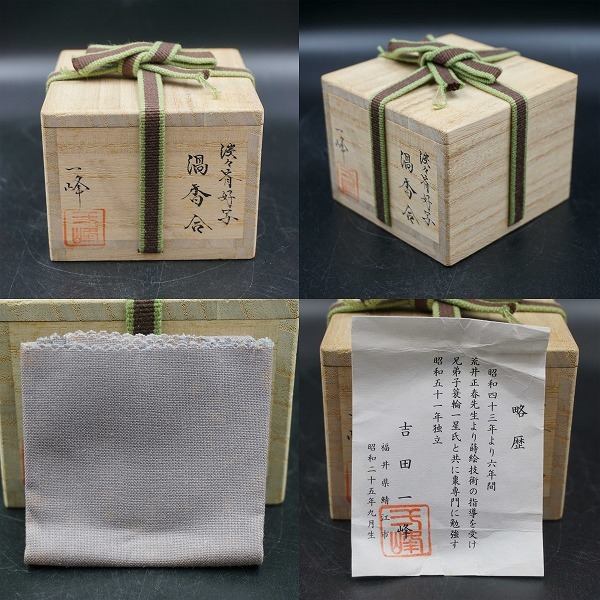 淡々斎好写
渦香合
一峰
一峰
淡々斎好写
渦香合
一峰
略歴
昭和四十三年より六年間
荒井正春先生より蒔絵技術の指導を受け
兄弟子箕輪一星氏と共に棗専門に勉強す
昭和五十一年独立
吉田一峰
福井県鯖江市
昭和二十五年九月生